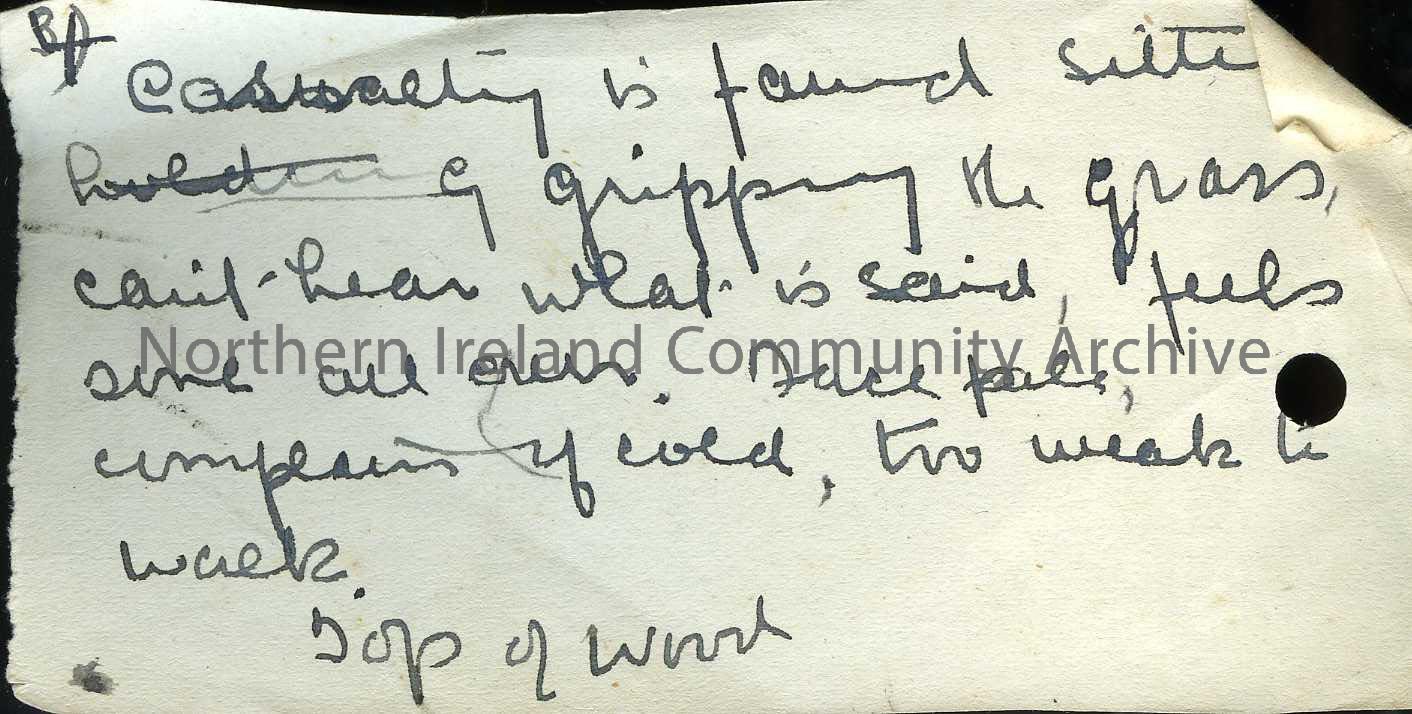 BA
Casualty is found sitti
holding g gripping the grass,
can't hear what is said, feels
sore all over. Face pale,
Northern Ireland Community Archive
complains of cold, too weak to
walk.
Top of Wood